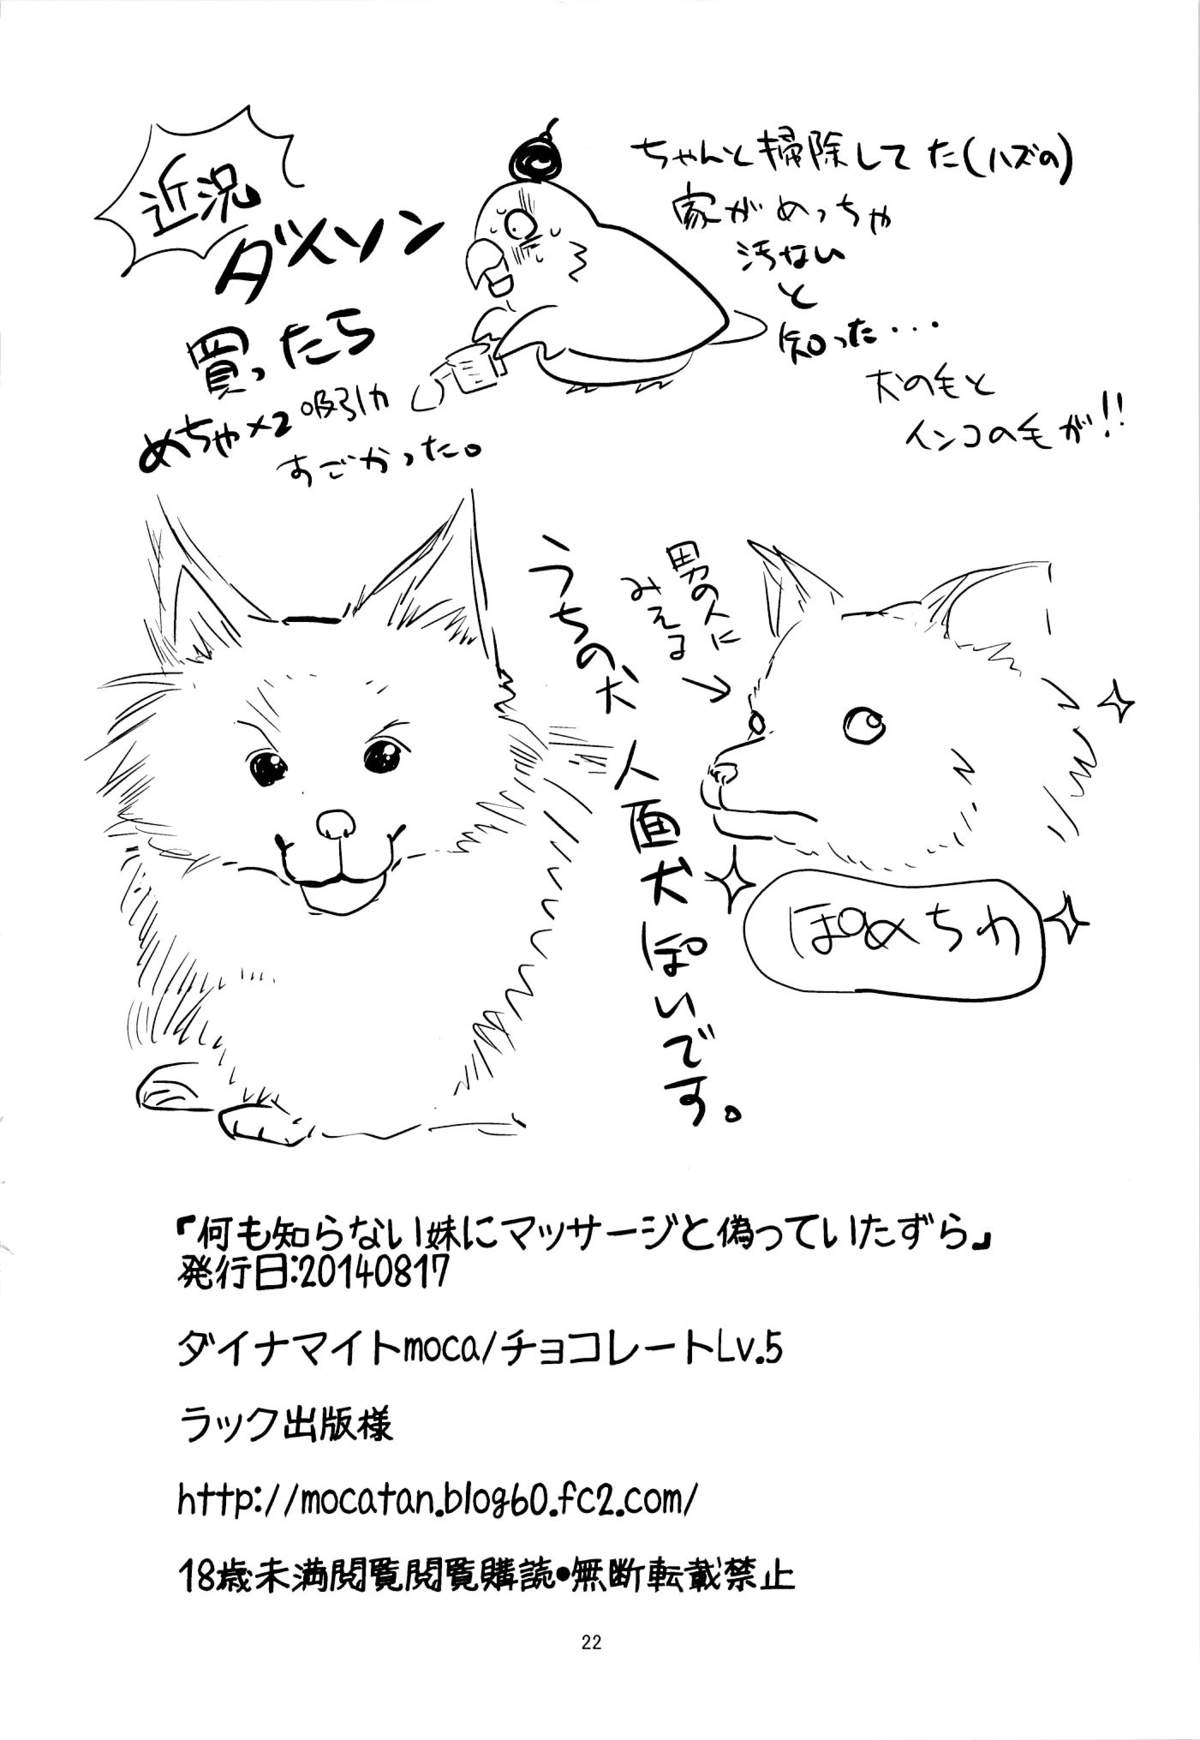 近況
ダイソン
買ったら
めちゃ×2吸引力
すごかった。
ちゃんと掃除してた(ハズの)
家がめっちゃ
汚ない
と
知った・・・
犬の毛と
インコの毛が!!
うちの犬
人面犬ぽいです。
男の人に
みえる
ぽめちわ
『何も知らない妹にマッサージと偽っていたずら』
発行日:20140817
ダイナマイトmoca/チョコレートLv.5
ラック出版様
http://mocatan.blog60.fc2.com/
18歳未満閲覧閲覧購読・無断転載禁止
22